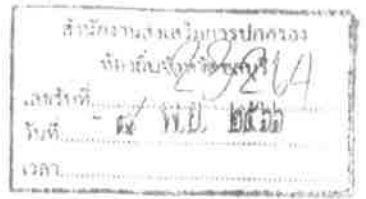 สำนักงานส่งเสริมการปกครอง
ท้องถิ่นจังหวัดชลบุรี
เลขรับที่
วันที่ พ.ย. ๒๕๖๖
เวลา